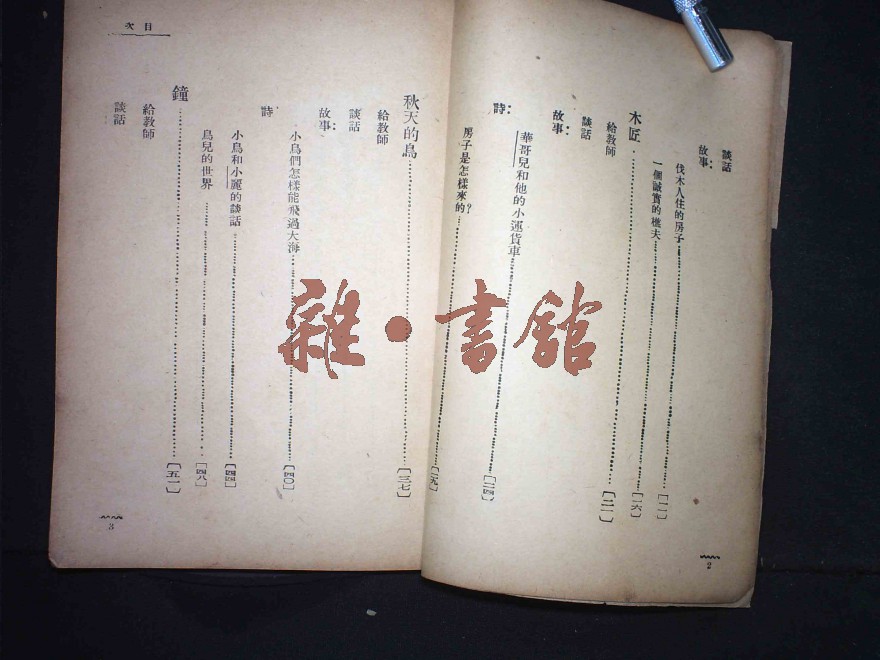 談話
故事：
伐木人住的房子……〔一一〕
一個誠實的樵夫……〔一六〕
木匠……〔二一〕
給教師
談話
故事：
華哥兒和他的小運貨車……〔二四〕
詩：
房子是怎樣來的？……〔二九〕
2
目次
秋天的鳥……〔三七〕
給教師
談話
故事：
小鳥們怎樣能飛過大海……〔四〇〕
詩
小鳥和小麗的談話……〔四四〕
鳥兒的世界……〔四八〕
鐘……〔五一〕
給教師
談話
3
雜·書館